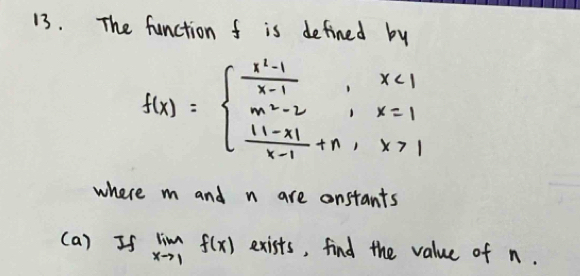 13. The function f is defined by
x²-1
x-1 , x<1
f(x) = { m²-2 , x=1
|1-x|
x-1 +n , x>1
where m and n are onstants
(a) If lim f(x) exists, find the value of n.
x→1